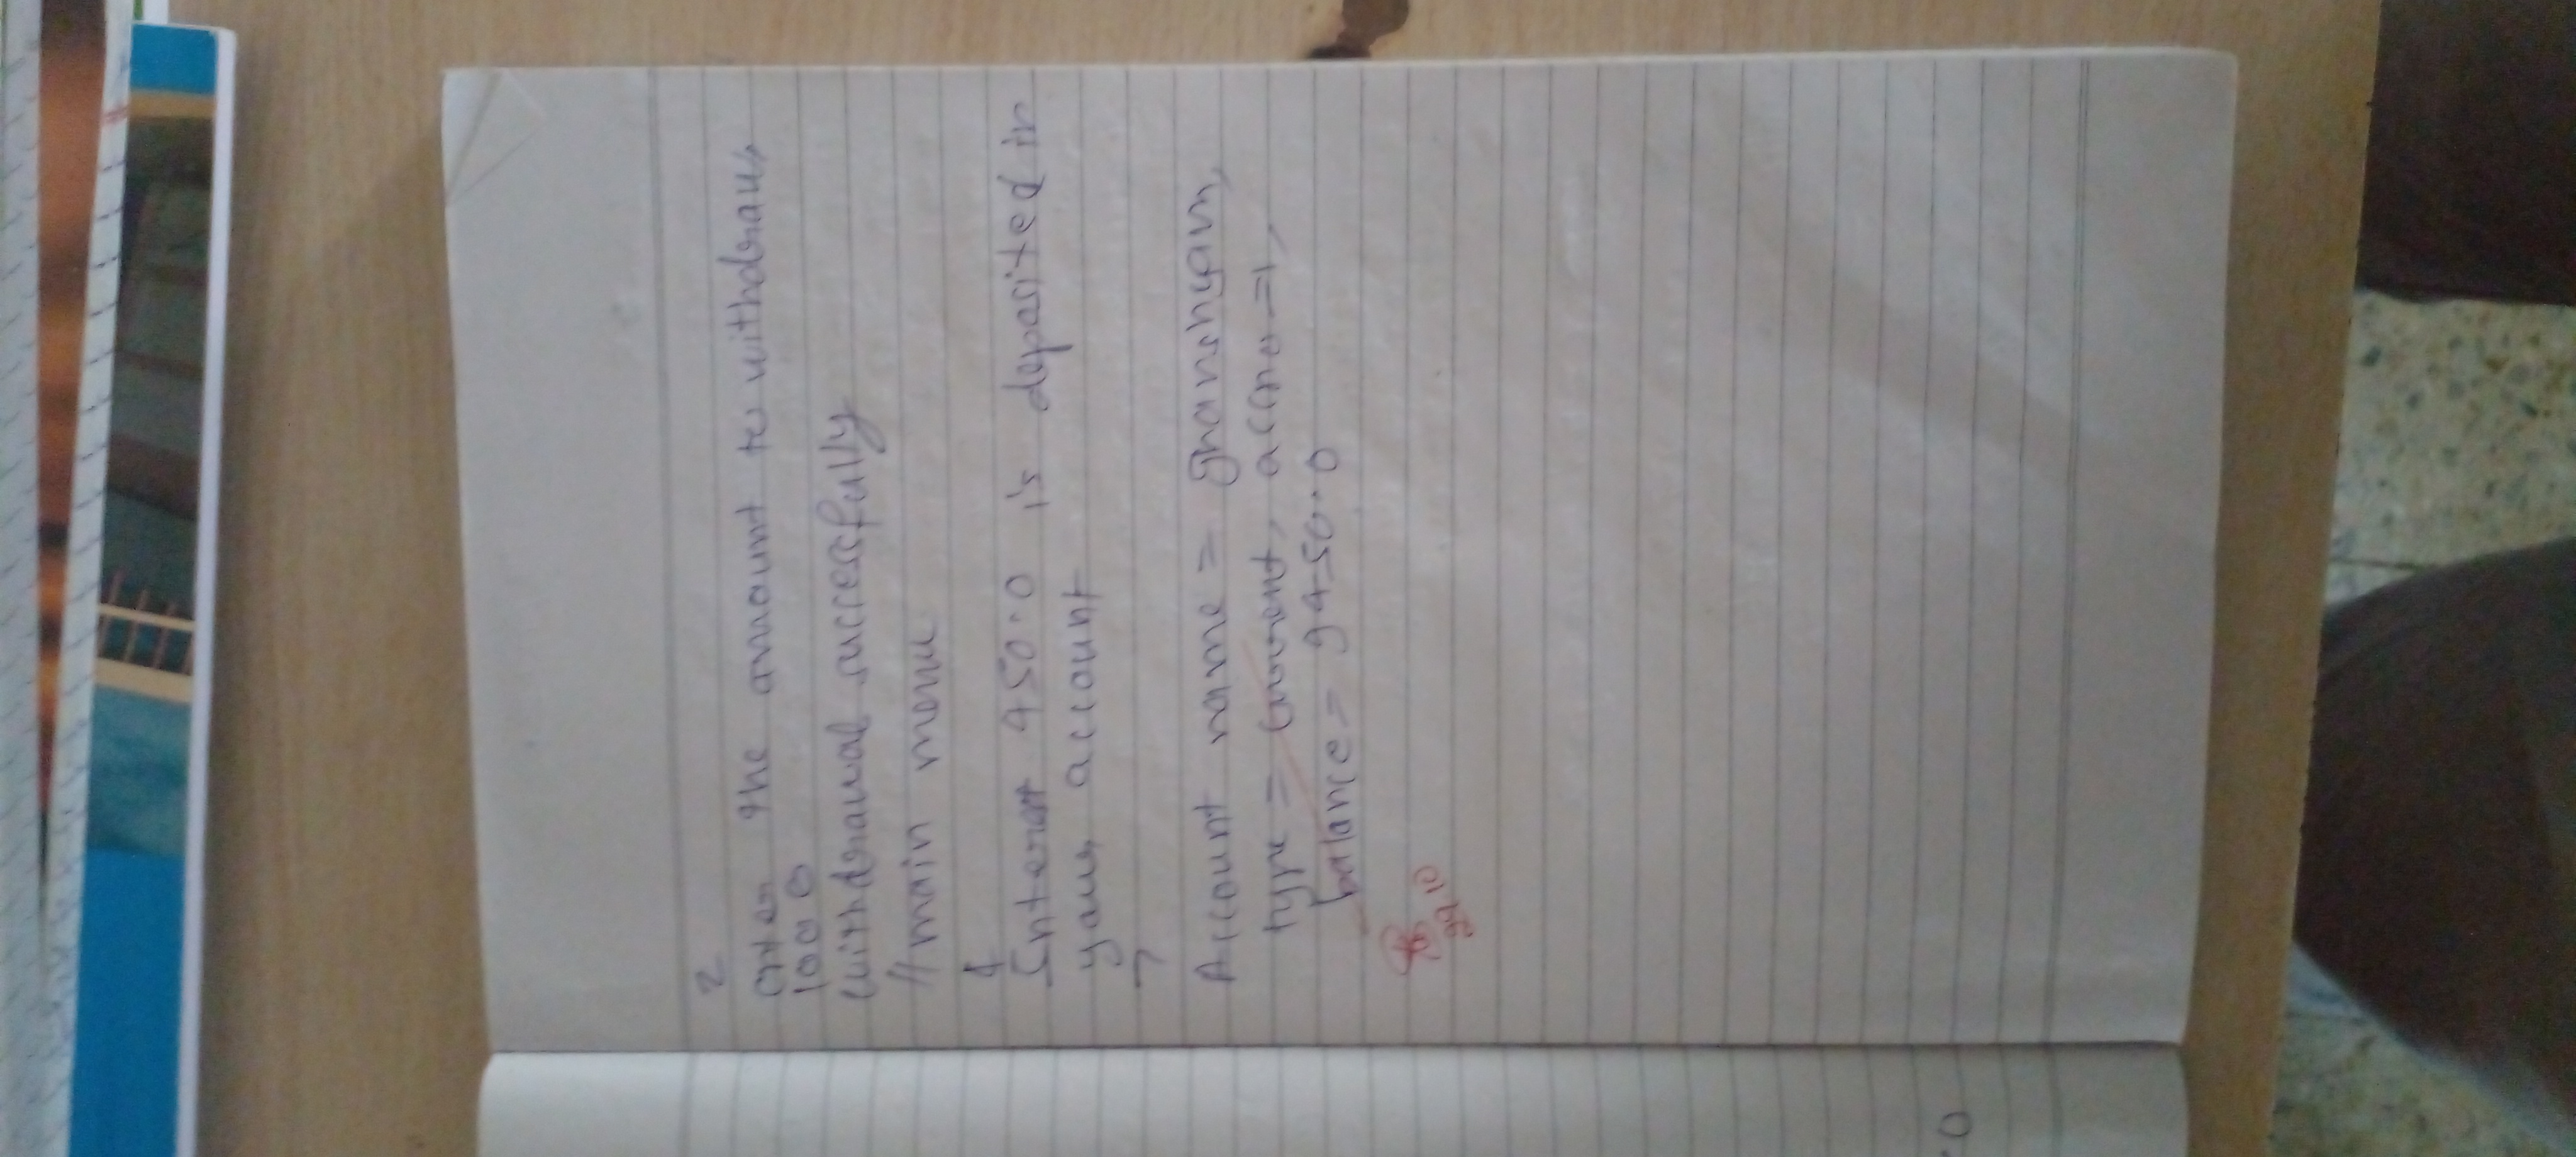 2
enter the amount to withdraw
1000
withdrawal successfully
//main menu
4
Interest 450.0 is deposited in
your account
7
Account name = ghanshyam,
type = current, accno = 1,
balance = 9450.0
29.10